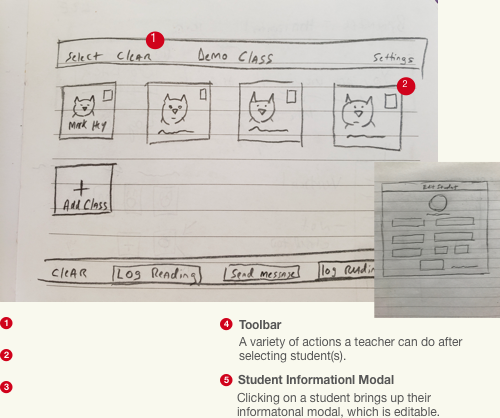 1
Select Clear Demo Class Settings
2
Mark Hey
+
Add Class
Edit Student
Clear Log Reading Send message log Readin
1
2
3
4 Toolbar
A variety of actions a teacher can do after
selecting student(s).
5 Student Informationl Modal
Clicking on a student brings up their
informatonal modal, which is editable.